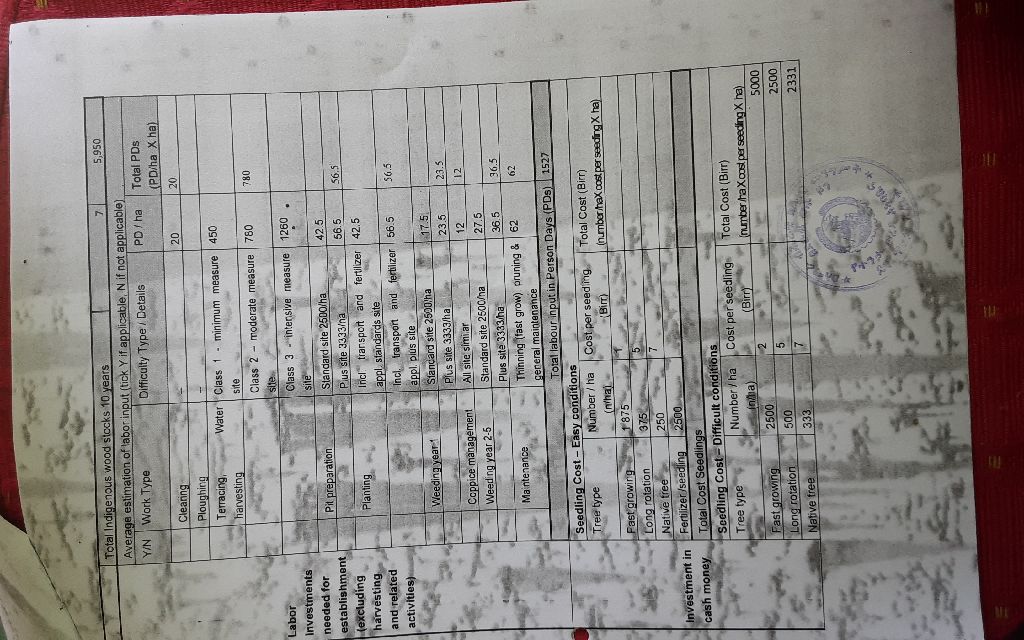 Total Indigenous wood stocks 10 years 7 5,950
Average estimation of labor input (tick Y if applicable, N if not applicable)
Y/N Work Type Difficulty Type / Details PD / ha Total PDs
(PD/ha X ha)
Labor
Investments
needed for
establishment
(excluding
harvesting
and related
activities)
Clearing – 20 20
Ploughing –
Terracing, Water Class 1 - minimum measure 450
harvesting site
Class 2 - moderate measure 760 780
site
Class 3 - intensive measure 1260
site
Pit preparation Standard site 2500/ha 42.5
Plus site 3333/ha 56.5 56.5
Planting Incl transport and fertilizer 42.5
appl standards site
Incl. transport and fertilizer 56.5 56.5
appl plus site
Weeding year 1 Standard site 2500/ha 17.5
Plus site 3333/ha 23.5 23.5
Coppice management All site similar 12 12
Weeding year 2-5 Standard site 2500/ha 27.5
Plus site 3333/ha 36.5 36.5
Maintenance Thinning (fast grow) pruning & 62 62
general maintenance
Total labour input in Person Days (PDs) 1527
Investment in
cash money
Seedling Cost – Easy conditions
Tree type Number / ha Cost per seedling Total Cost (Birr)
(n/ha) (Birr) (number/ha X cost per seedling X ha)
Fast growing 1875
Long rotation 375 5
Native tree 250 7
Fertilizer/seedling 2500
Total Cost Seedlings
Seedling Cost – Difficult conditions
Tree type Number / ha Cost per seedling Total Cost (Birr)
(n/ha) (Birr) (number/ha X cost per seedling X ha)
Fast growing 2500 2 5000
Long rotation 500 5 2500
Native tree 333 7 2331